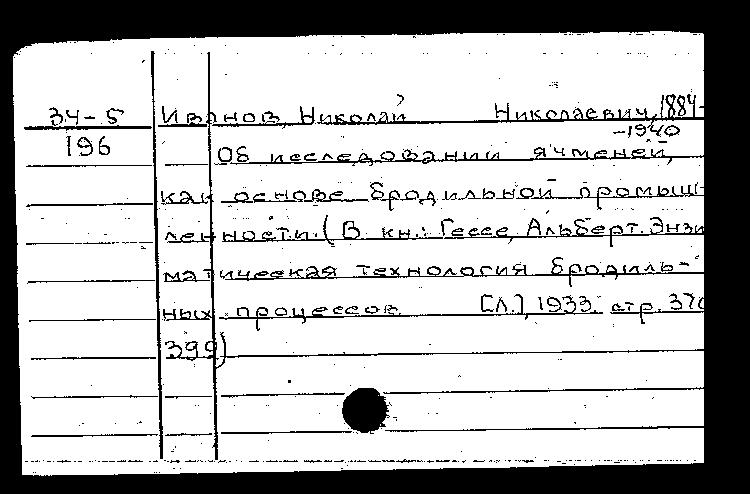 34-5 Иванов, Николай Николаевич, 1884-
-1940
196 Об исследовании ячменей,
как основе бродильной промыш-
ленности. (В кн.: Гессе, Альберт. Энзи
матическая технология бродиль-
ных процессов [Л.], 1933. стр. 370
399)